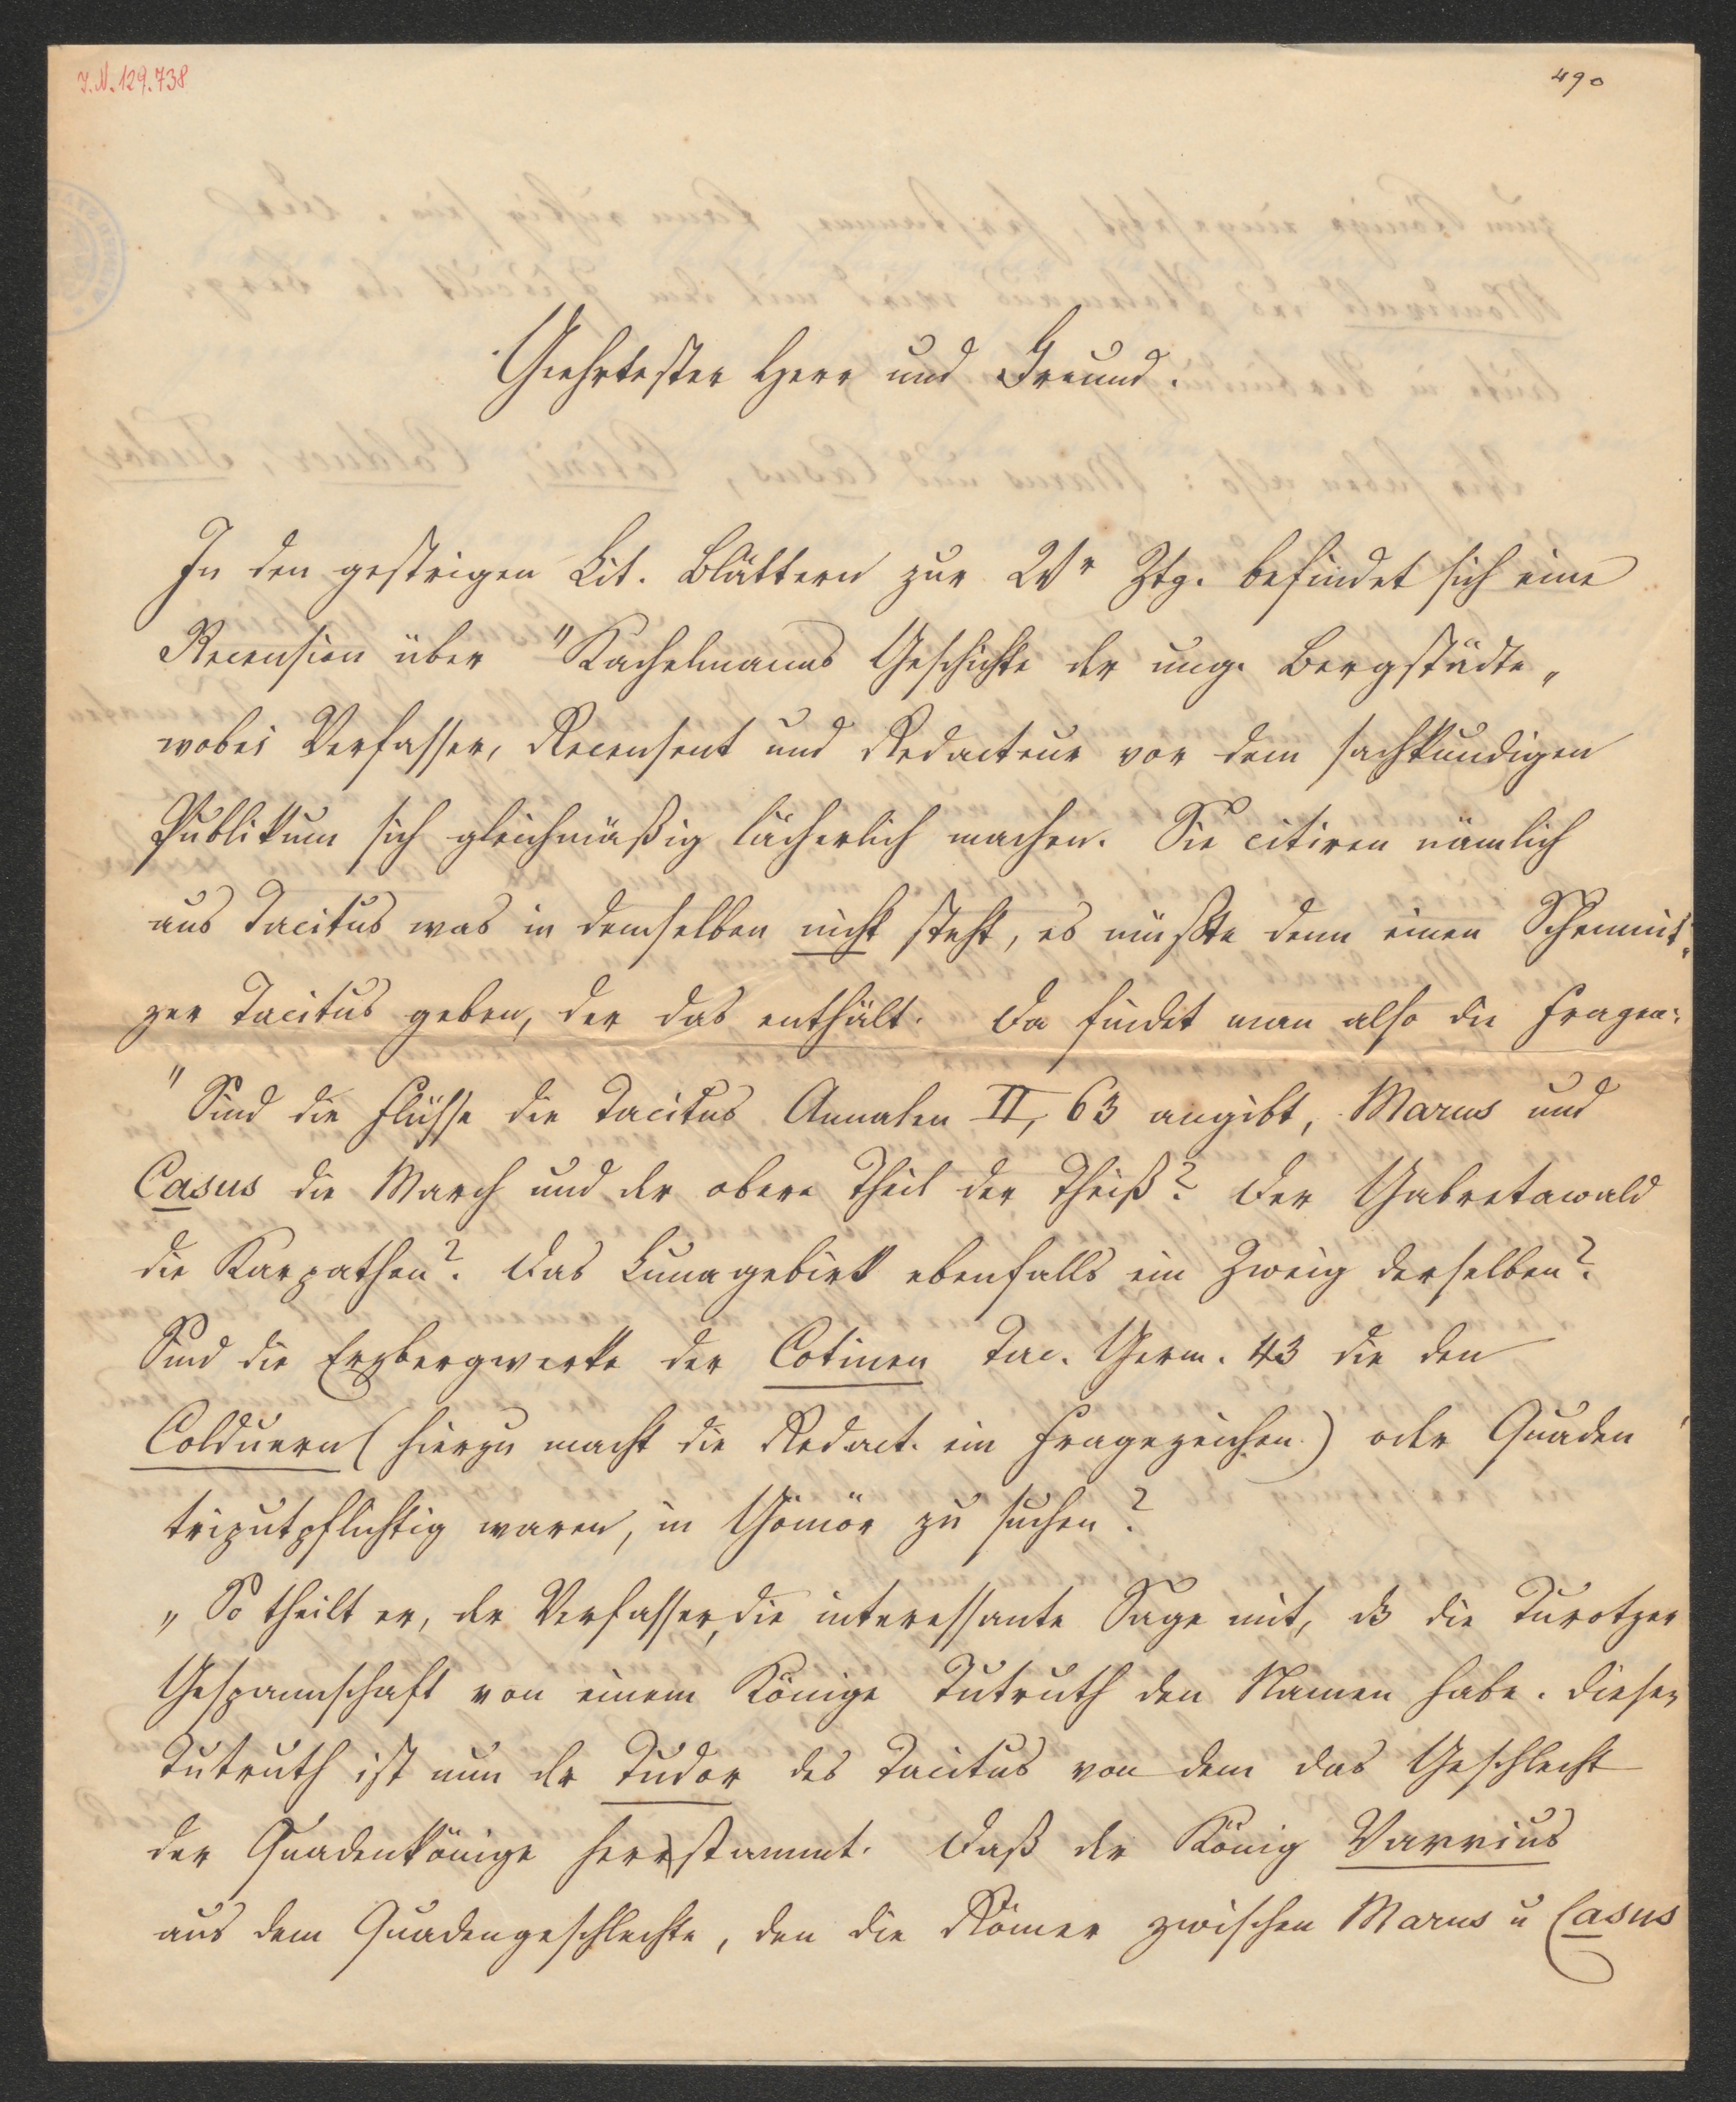 I.N. 129.738
490
Geehrtester Herr und Freund.
In den gestrigen Lit. Blättern zur Wr Ztg. befindet sich eine
Recension über "Kachelmanns Geschichte der ung. Bergstädte„
wobei Verfasser, Recensent und Redacteur vor dem sachkundigen
Publikum sich gleichmäßig lächerlich machen. Sie citiren nämlich
aus Tacitus was in demselben nicht steht, es müßte denn einen Schemnit-
zer Tacitus geben, der das enthält. Da findet man also die Fragen:
"Sind die Flüsse die Tacitus Annalen II, 63 angibt, Marus und
Casus die March und der obere Theil der Theiß? Der Gabretawald
die Karpathen? Das Lunagebirk ebenfalls ein Zweig derselben?
Sind die Erzbergwerke der Cotinen Tac. Germ. 43 die den
Colduern (hierzu macht die Redact. ein Fragezeichen) oder Quaden
triputpflichtig waren, in Gömör zu suchen?
„So theilt er, der Verfasser, die interessante Sage mit, dß die Turotzer
Gespannschaft von einem Könige Tutruth den Namen habe. Dieser
Tutruth ist nun der Tudor des Tacitus von dem das Geschlecht
der Quadenkönige herstammt. Daß der König Varrius
aus dem Quadengeschlechte, den die Römer zwischen Marus u Casus